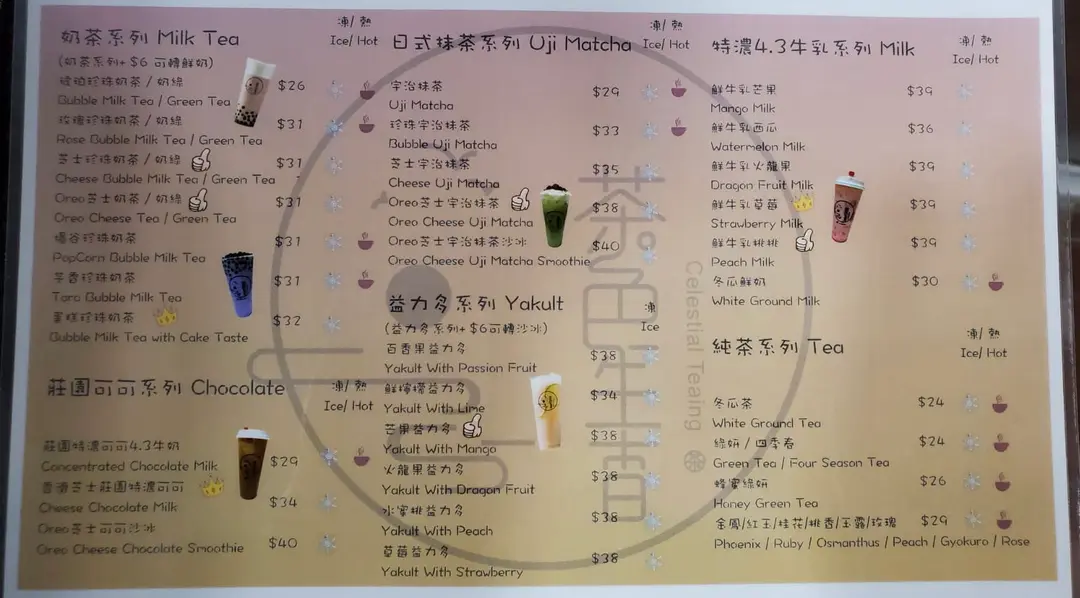 奶茶系列 Milk Tea
凍/ 熱
Ice/ Hot
(奶茶系列+ $6 可轉鮮奶)
琥珀珍珠奶茶 / 奶綠 $26
Bubble Milk Tea / Green Tea
玫瑰珍珠奶茶 / 奶綠 $31
Rose Bubble Milk Tea / Green Tea
芝士珍珠奶茶 / 奶綠 $31
Cheese Bubble Milk Tea / Green Tea
Oreo芝士奶茶 / 奶綠 $31
Oreo Cheese Tea / Green Tea
爆谷珍珠奶茶 $31
PopCorn Bubble Milk Tea
芋香珍珠奶茶 $31
Taro Bubble Milk Tea
蛋糕珍珠奶茶 $32
Bubble Milk Tea with Cake Taste
莊園可可系列 Chocolate
凍/ 熱
Ice/ Hot
莊園特濃可可4.3牛奶 $29
Concentrated Chocolate Milk
香滑芝士莊園特濃可可 $34
Cheese Chocolate Milk
Oreo芝士可可沙冰 $40
Oreo Cheese Chocolate Smoothie
日式抹茶系列 Uji Matcha
凍/ 熱
Ice/ Hot
宇治抹茶 $29
Uji Matcha
珍珠宇治抹茶 $33
Bubble Uji Matcha
芝士宇治抹茶 $35
Cheese Uji Matcha
Oreo芝士宇治抹茶 $38
Oreo Cheese Uji Matcha
Oreo芝士宇治抹茶沙冰 $40
Oreo Cheese Uji Matcha Smoothie
益力多系列 Yakult
凍
Ice
(益力多系列+ $6可轉沙冰)
百香果益力多 $38
Yakult With Passion Fruit
鮮檸檬益力多 $34
Yakult With Lime
芒果益力多 $38
Yakult With Mango
火龍果益力多 $38
Yakult With Dragon Fruit
水蜜桃益力多 $38
Yakult With Peach
草莓益力多 $38
Yakult With Strawberry
特濃4.3牛乳系列 Milk
凍/ 熱
Ice/ Hot
鮮牛乳芒果 $39
Mango Milk
鮮牛乳西瓜 $36
Watermelon Milk
鮮牛乳火龍果 $39
Dragon Fruit Milk
鮮牛乳草莓 $39
Strawberry Milk
鮮牛乳桃桃 $39
Peach Milk
冬瓜鮮奶 $30
White Ground Milk
純茶系列 Tea
凍/ 熱
Ice/ Hot
冬瓜茶 $24
White Ground Tea
綠妍 / 四季春 $24
Green Tea / Four Season Tea
蜂蜜綠妍 $26
Honey Green Tea
金鳳/紅玉/桂花/桃香/玉露/玫瑰 $29
Phoenix / Ruby / Osmanthus / Peach / Gyokuro / Rose
茶色生香
Celestial Teaing